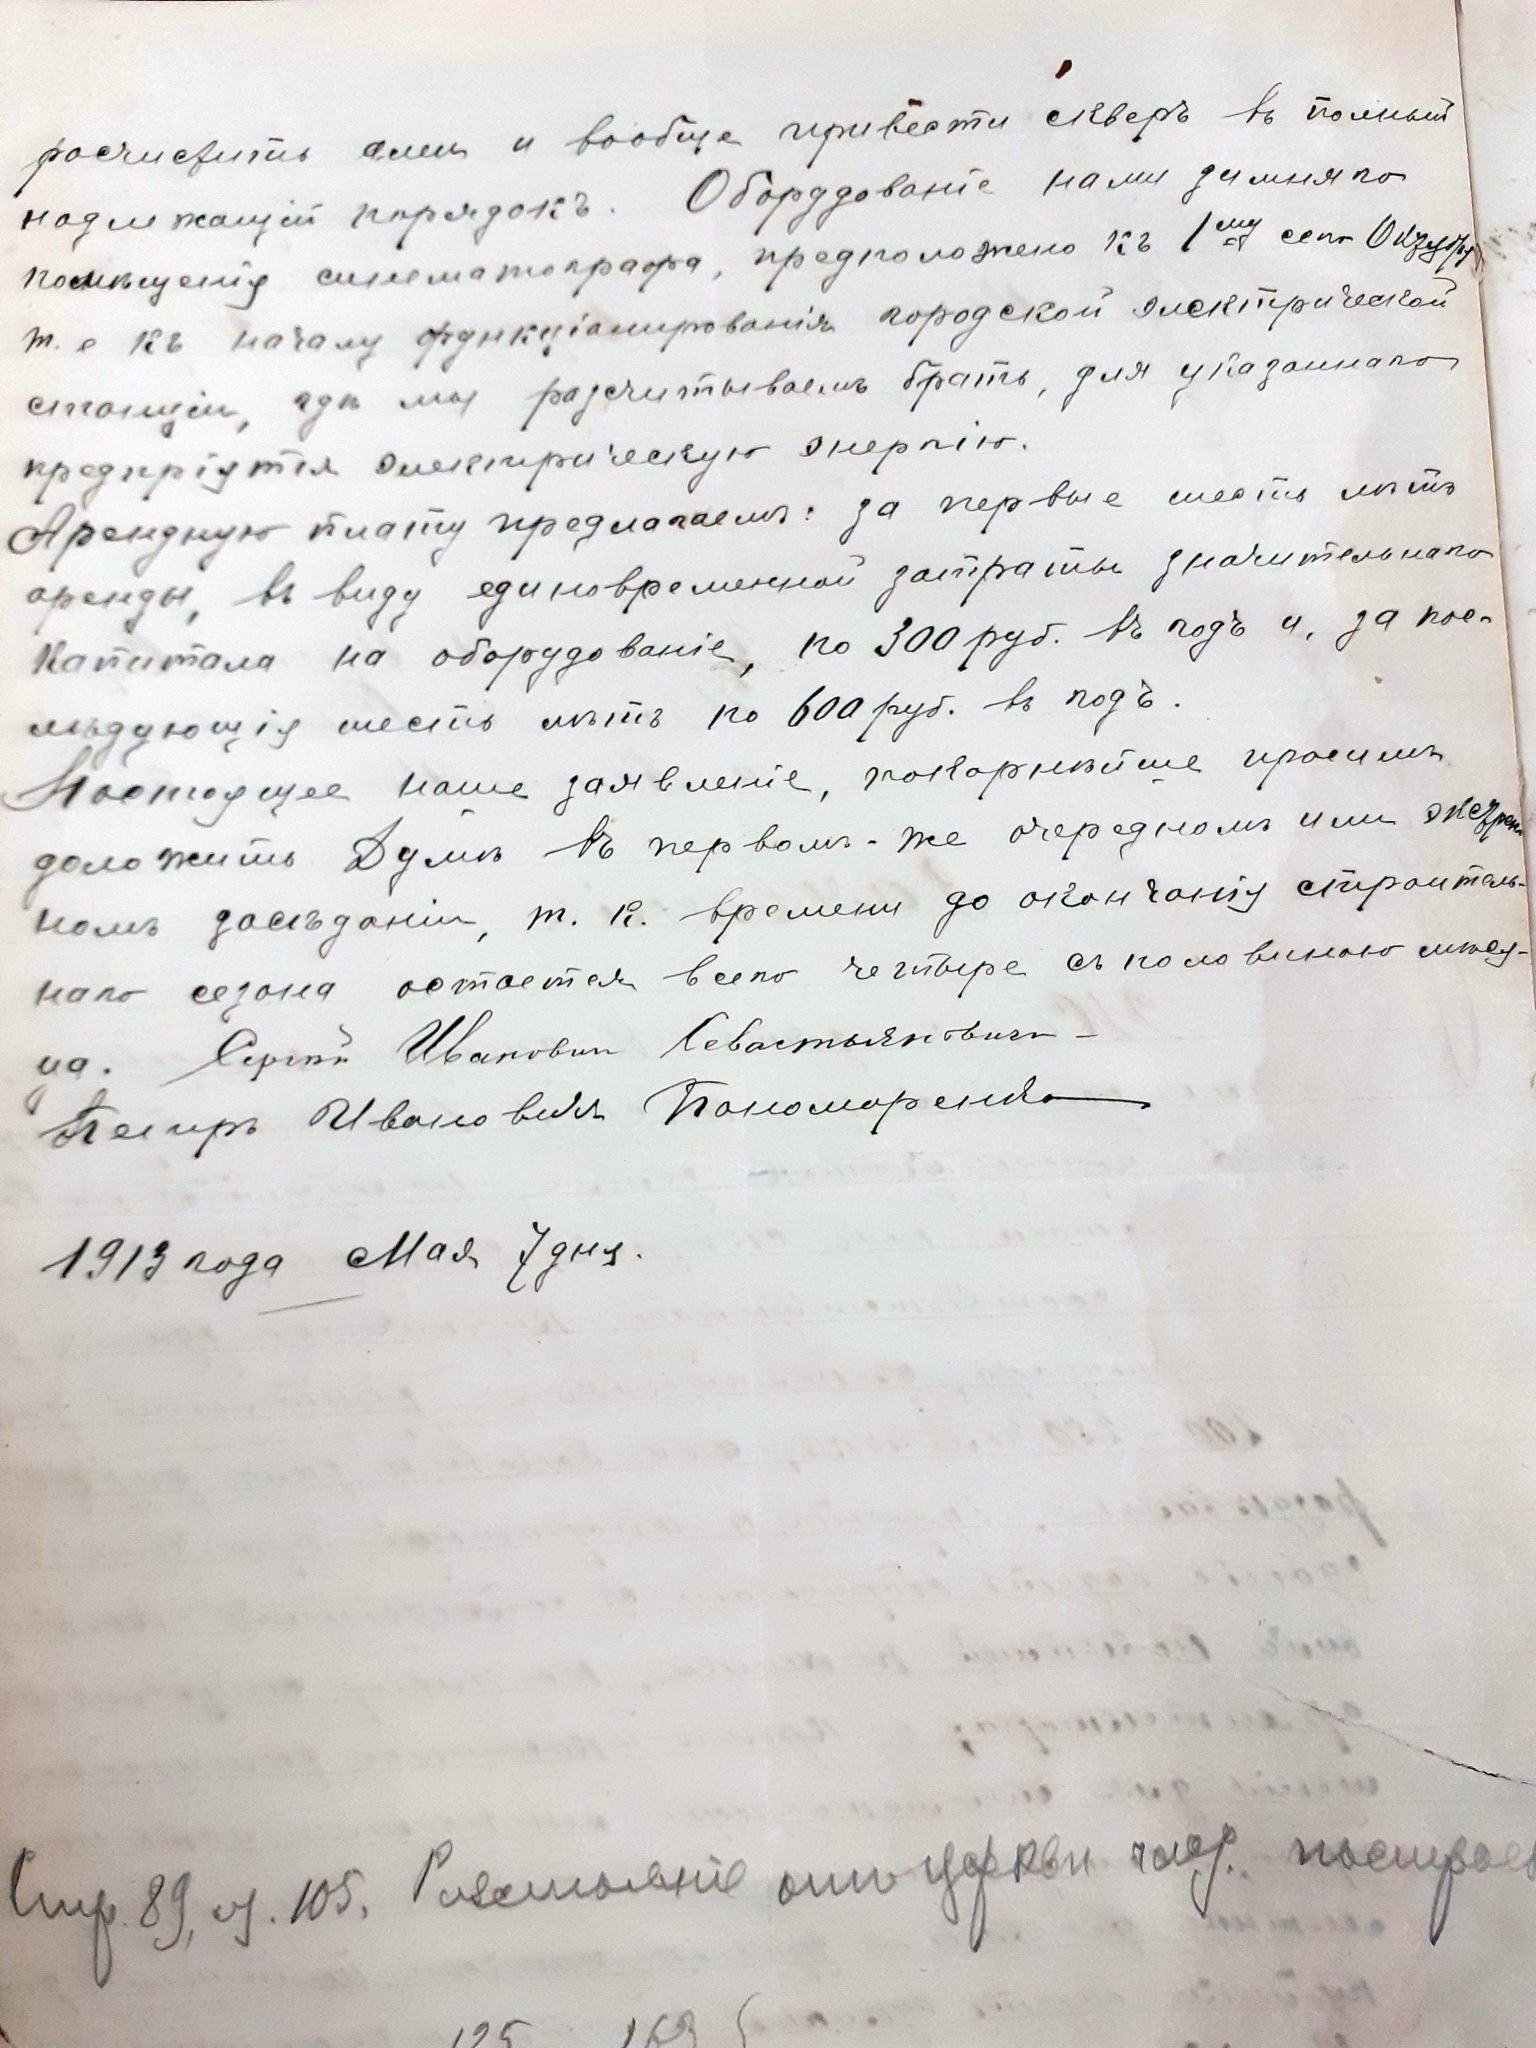 расчистить алеи и вообще привести скверъ въ полный
надлежащiй порядокъ. Оборудованiе нами зимняго
помѣщенiя синематографа, предположено къ 1му сего Октября
т. е къ началу функцiонированiя городской электрической
станцiи, гдѣ мы разсчитываемъ брать, для указаннаго
предпрiятiя электрическую энергiю.
Арендную плату предлагаемъ: за первые шесть лѣтъ
аренды, въ виду единовременной затраты значительнаго
капитала на оборудованiе, по 300 руб. въ годъ и, за пос-
лѣдующiя шесть лѣтъ по 600 руб. въ годъ.
Настоящее наше заявленiе, покорнѣйше просимъ
доложить Думѣ въ первомъ-же очередномъ или экстрен
номъ засѣданiи, т. к. времени до окончанiя строитель-
наго сезона остается всего четыре съ половиною меся-
ца. Сергѣй Ивановичъ Севастьяновичъ
Петръ Ивановичъ Пономаренко
1913 года Мая 7 дня.
Стр. 89, 105. Разстоянiе отъ церкви
125 163